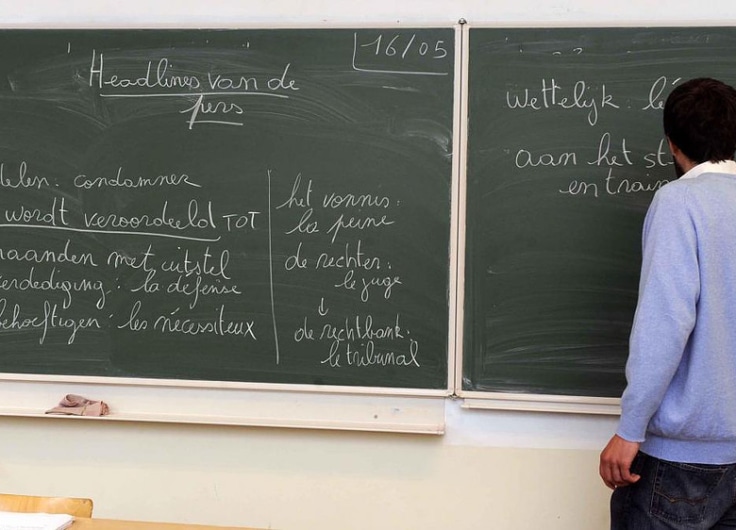 Headlines van de
pers
16/05
delen: condamner
wordt veroordeeld TOT
maanden met uitstel
erdediging: la défense
behoeftigen: les nécessiteux
het vonnis:
la peine
de rechter:
le juge
↓
de rechtbank:
le tribunal
wettelijk: lé
aan het st
en train